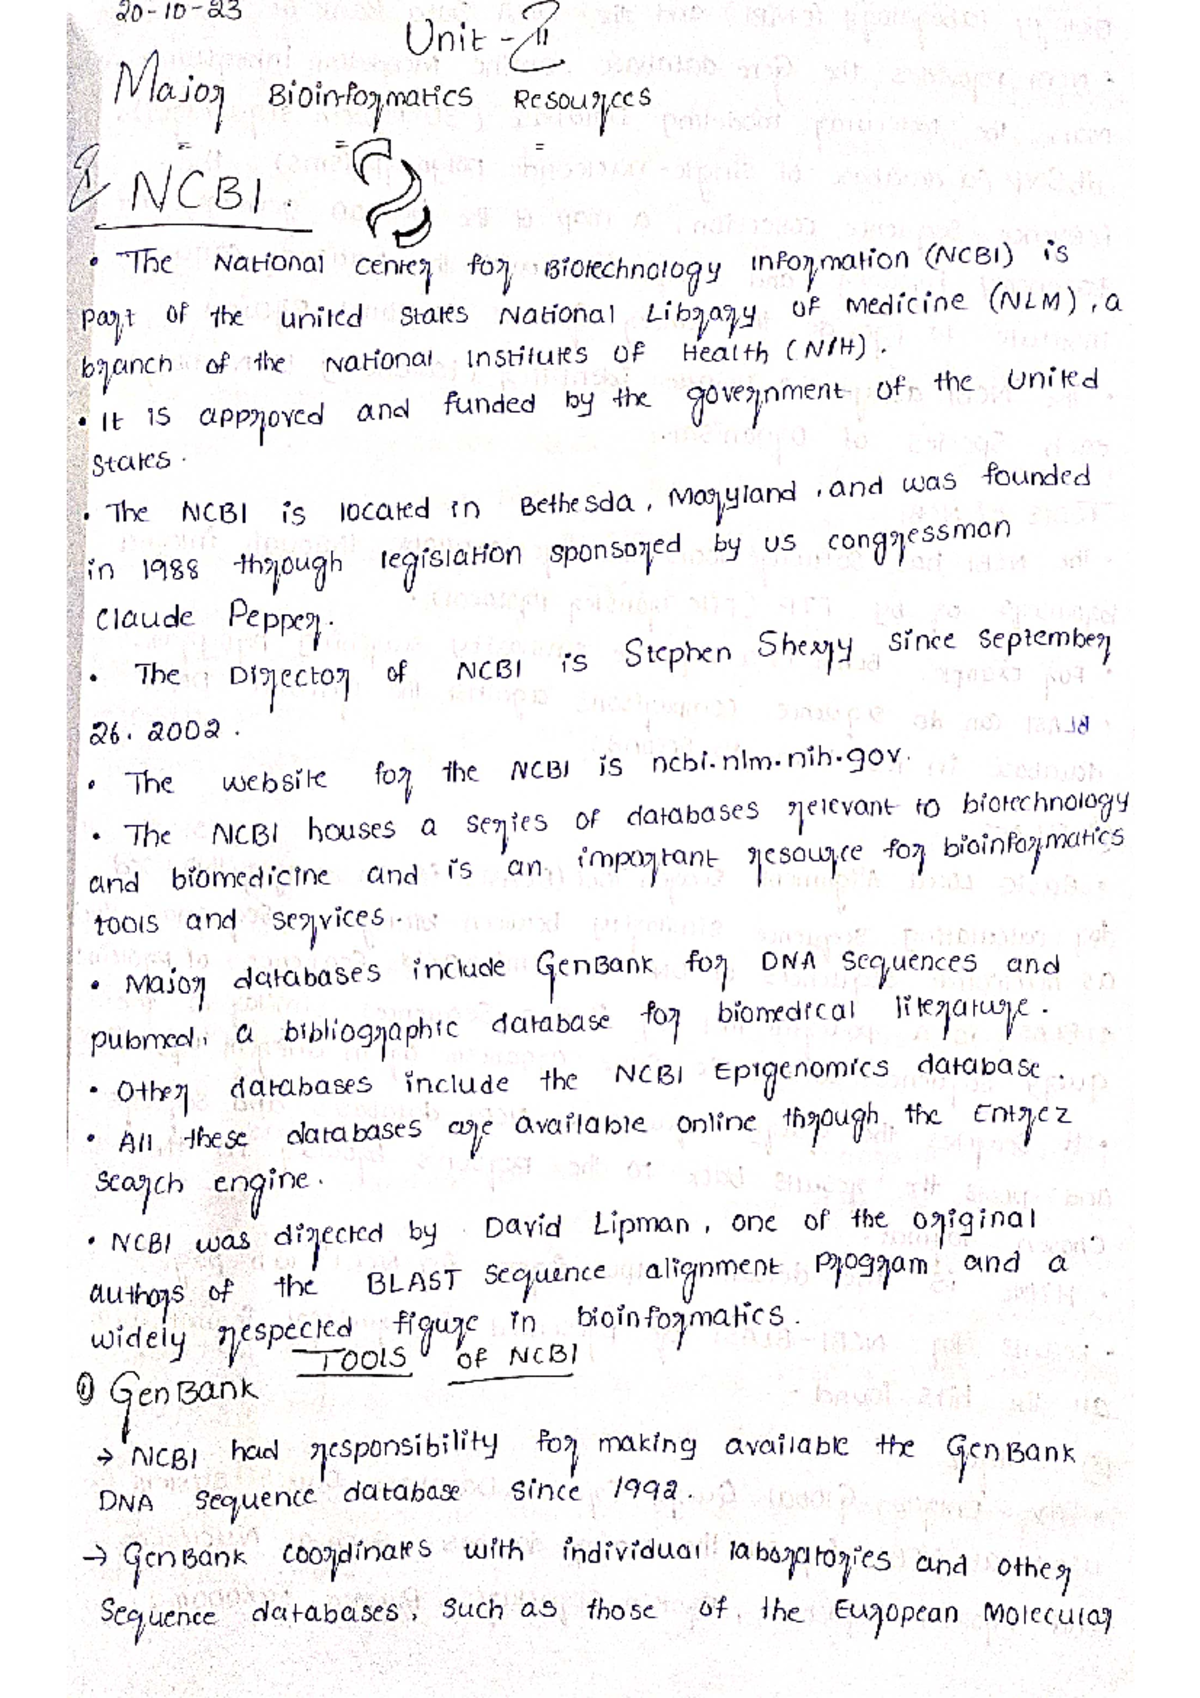 20-10-23
Unit - II
Major Bioinformatics Resources
I NCBI.
• The National Center for Biotechnology Information (NCBI) is
part of the united states National Library of Medicine (NLM), a
branch of the National Institutes of Health (NIH).
• It is approved and funded by the government of the United
States.
• The NCBI is located in Bethesda, Maryland, and was founded
in 1988 through legislation sponsored by us congressman
Claude Pepper.
• The Director of NCBI is Stephen Sherry since September
26. 2002.
• The website for the NCBI is ncbi.nlm.nih.gov.
• The NCBI houses a series of databases relevant to biotechnology
and biomedicine and is an important resource for bioinformatics
tools and services.
• Major databases include GenBank for DNA sequences and
pubmed, a bibliographic database for biomedical literature.
• Other databases include the NCBI Epigenomics database.
• All these databases are available online through the Entrez
search engine.
• NCBI was directed by David Lipman, one of the original
authors of the BLAST sequence alignment program and a
widely respected figure in bioinformatics.
TOOLS OF NCBI
① GenBank
→ NCBI had responsibility for making available the GenBank
DNA sequence database since 1992.
→ GenBank coordinates with individual laboratories and other
sequence databases, such as those of the European Molecular